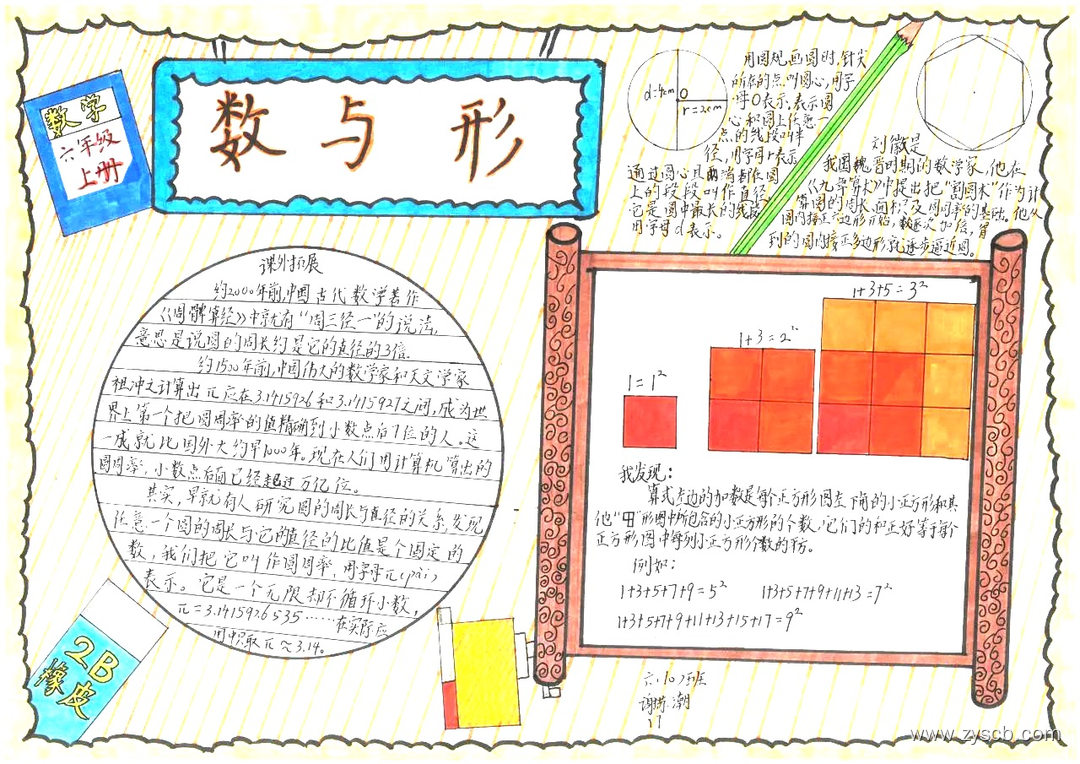 数学
六年级
上册
数与形
d=4cm
O
r=2cm
用圆规画圆时,针尖
所在的点叫圆心,用字
母O表示,表示圆
心和圆上任意一
点的线段叫半
径,用字母r表示
通过圆心且两端都在圆
上的段段叫作直径
它是圆中最长的线段
用字母d表示。
刘徽是
我国魏晋时期的数学家,他在
《九章算术》中提出把"割圆术"作为计
算圆的周长、面积以及圆周率的基础。他从
圆内接正六边形开始,数逐次加倍,得
到的圆内接正多边形就逐步逼近圆。
课外拓展
约2000年前,中国古代数学著作
《周髀算经》中就有"周三径一"的说法,
意思是说圆的周长约是它的直径的3倍
约1500年前,中国伟大的数学家和天文学家
祖冲之计算出π应在3.1415926和3.1415927之间,成为世
界上第一个把圆周率的值精确到小数点后7位的人。这
一成就比国外大约早1000年。现在人们用计算机算出的
圆周率,小数点后面已经超过万亿位。
其实,早就有人研究圆的周长与直径的关系,发现
任意一个圆的周长与它的直径的比值是个固定的
数,我们把它叫作圆周率,用字母π(pài)
表示。它是一个无限却不循环小数,
π=3.1415926535……在实际应
用中取π≈3.14。
1=1²
1+3=2²
1+3+5=3²
我发现:
算式左边的加数是每个正方形图左下角的小正方形和其
他"┓"形图中所包含的小正方形的个数,它们的和正好等于每个
正方形图中每列小正方形个数的平方。
例如:
1+3+5+7+9=5² 1+3+5+7+9+11+13=7²
1+3+5+7+9+11+13+15+17=9²
2B
橡皮
六.10班
潮
11
www.zyscb.com